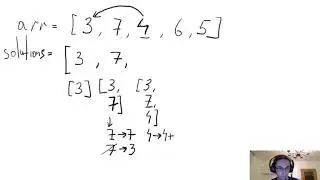 arr = [3, 7, 4, 6, 5]
solutions = [3, 7,
[3] [3, 7] [3, 7, 4]
7→7 4→4+
7→3